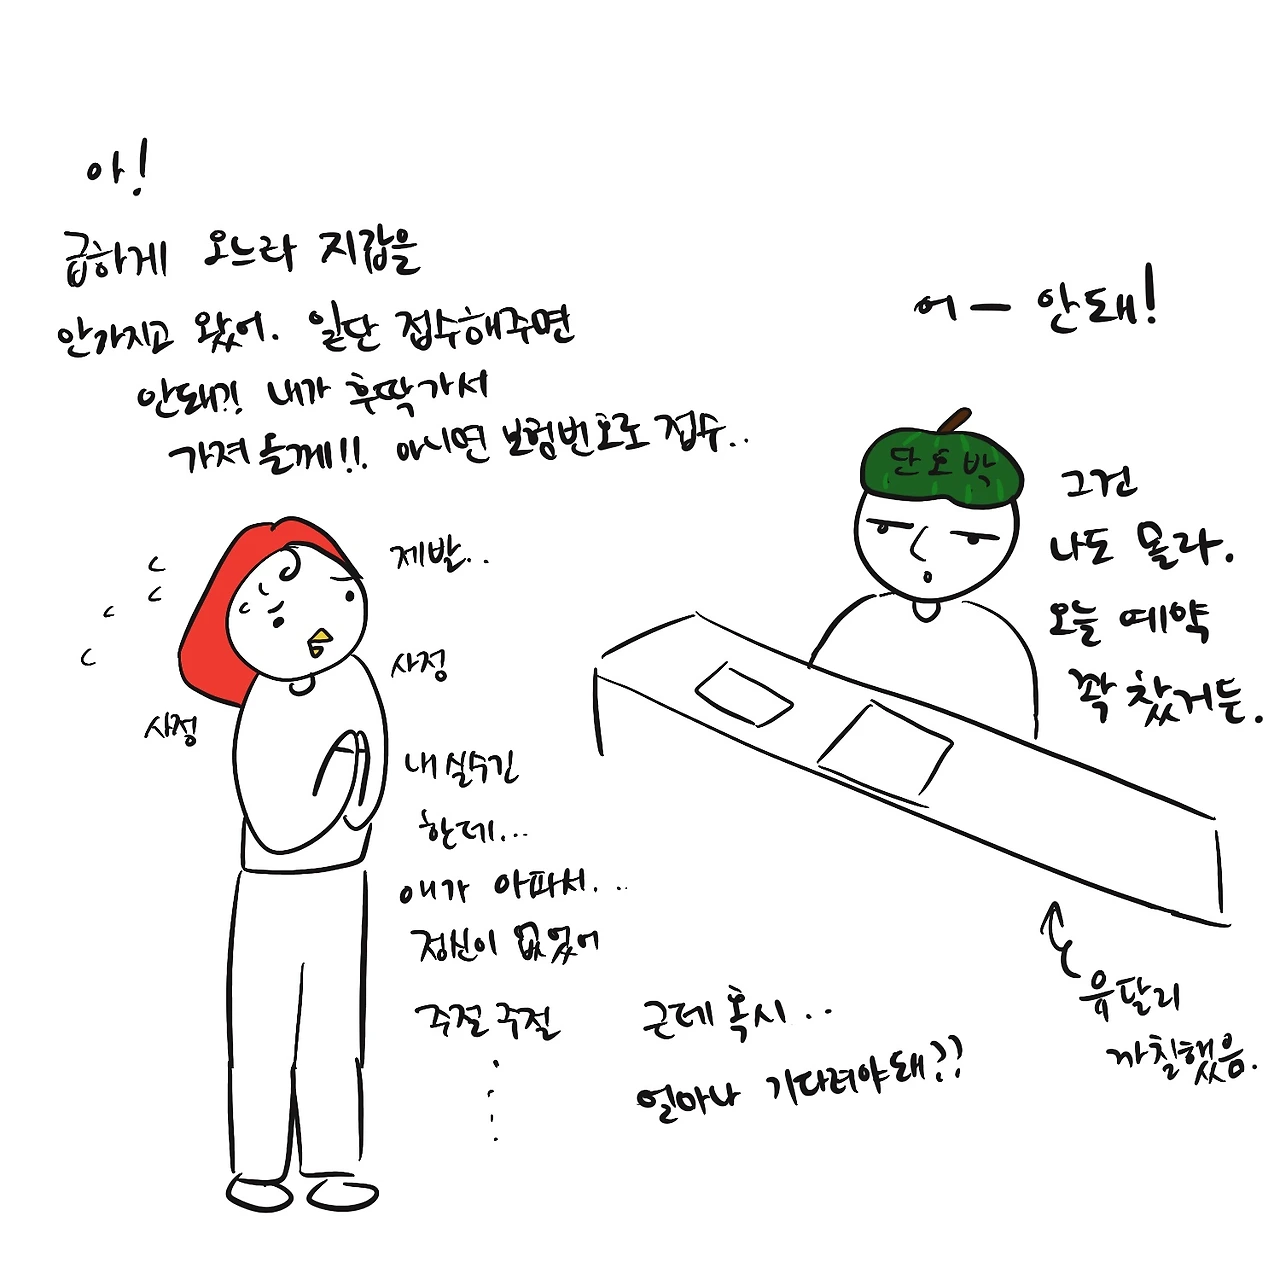 아!
급하게 오느라 지갑을
안가지고 왔어. 일단 접수해주면
안돼?! 내가 후딱가서
가져 올께!! 아시면 보험번호로 접수..
제발..
사정
사정
내 실수긴
한데...
애가 아파서...
정신이 없었어
주절주절
어— 안돼!
단호박
그건
나도 몰라.
오늘 예약
꽉 찼거든.
유달리
까칠했음.
근데 혹시...
얼마나 기다려야돼??